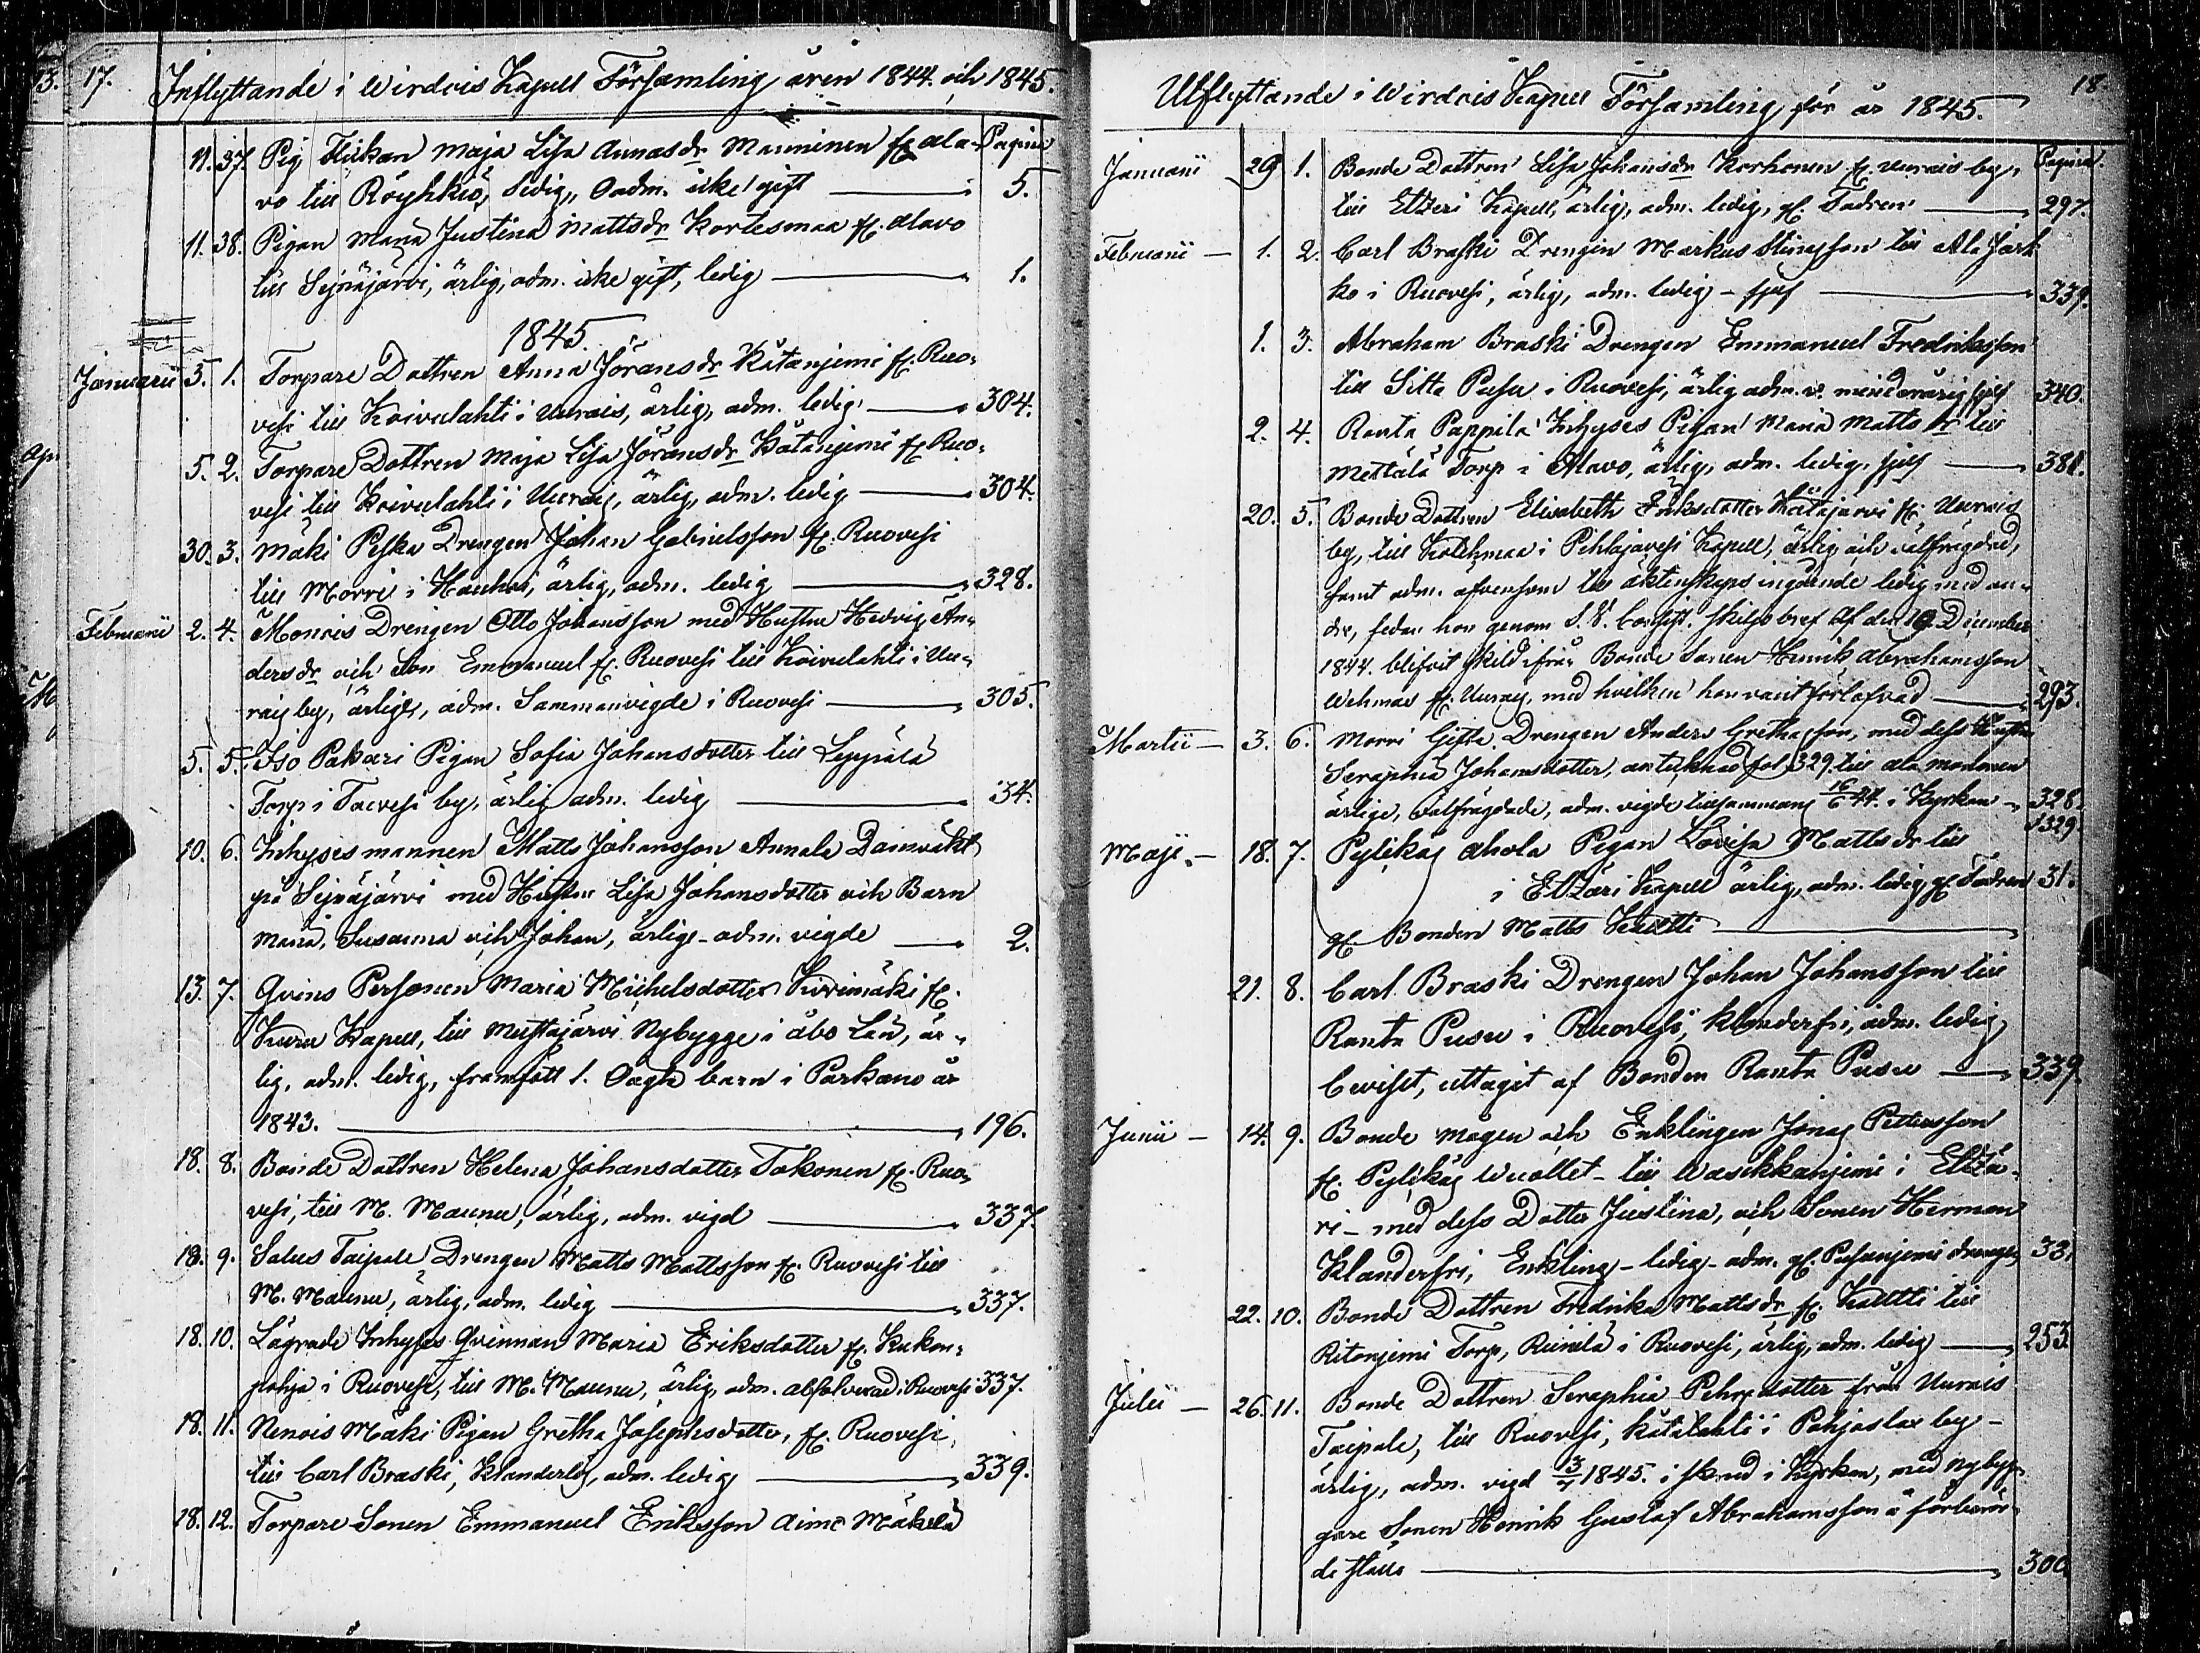 17. Inflyttande i Wirdois Kapell Församling åren 1844. och 1845.
Pagina
11. 37. Pig Flickan Maja Lisa Annasdr Manninen fr. Ala-
vo till Röyhkiö, ledig, oadm. icke gift 5.
11. 38. Pigan Maria Justina Mattsdr Kortesmaa fr. Alavo
till Sejnäjärvi, ärlig, adm. icke gift, ledig 1.
1845.
Januarii 5. 1. Torpare Dottren Anna Jöransdr Kätänjemi fr. Ruo-
vesi till Koivulahti i Uurais, ärlig, adm. ledig 304.
5. 2. Torpare Dottren Maja Lisa Jöransdr Kätänjemi fr. Ruo-
vesi till Koivulahti i Uurais, ärlig, adm. ledig 304.
30. 3. Mäki Peska Drengen Johan Gabrielsson fr. Ruovesi
till Morri i Hauhu, ärlig, adm. ledig 328.
Februarii 2. 4. Monois Drengen Otto Johansson med Hustru Hedvig An-
dersdr och Son Emmanuel fr. Ruovesi till Koivulahti i Uu-
rais by, ärlige, adm. Sammanvigde i Ruovesi 305.
5. 5. Iso Pakari Pigan Sofia Johansdotter till Leppälä
Torp i by, ärlig adm. ledig 34.
10. 6. Inhysesmannen Matts Johansson Annala
på Sejnäjärvi med Hustru Lisa Johansdotter och Barn
Maria, Susanna och Johan, ärlige - adm. vigde 2.
13. 7. Qvins Personen Maria Michelsdotter Kivimäki fr.
Kuru Kapell, till Mustajärvi Nybygge i Åbo Län, är-
lig, adm. ledig, framfödt 1. Oägta barn i Parkano år
1843. 196.
18. 8. Bonde Dottren Helena Johansdotter Tokonen fr. Ruo-
vesi, till M. Maunu, ärlig, adm. vigd 337
18. 9. Salus Taipale Drengen Matts Mattsson fr. Ruovesi till
M. Maunu, ärlig, adm. ledig 337.
18. 10. Lägrade Inhyses Qvinnan Maria Eriksdotter fr. Kukon-
pohja i Ruovesi, till M. Maunu, ärlig, adm. absolverad i Ruovesi 337.
18. 11. Nenois Mäki Pigan Gretha Josephsdotter, fr. Ruovesi,
till Carl Braski, Klanderlös, adm. ledig 339.
18. 12. Torpare Sonen Emmanuel Eriksson Aimo Mäkelä
18.
Utflyttande i Wirdois Kapell Församling för år 1845.
Pagina
Januarii 29 1. Bonde Dottren Lisa Johansdr Korhonen fr. Uurais by,
till Etzeri Kapell, ärlig, adm. ledig, gf. Fadren 297.
Februarii - 1. 2. Carl Braski Drengen Markus Stinasson till Ala Jäak-
ko i Ruovesi, ärlig, adm. ledig - sjelf 339.
1. 3. Abraham Braski Drengen Emmanuel Fredriksson
till Sitta Pusu i Ruovesi, ärlig adm. o. minderårig sjelf 340.
2. 4. Ranta Pappila Inhyses Pigan Maria Mattsdr till
Mettälä Torp i Alavo, ärlig, adm. ledig, sjelf 381.
20. 5. Bonde Dottren Elisabeth Eriksdotter Kätäjärvi fr. Uurais
by, till Kolehmaa i Pihlajavesi Kapell, ärlig och välfrägdad,
samt adm. äfvensom till äktenskaps ingående ledig med an-
dre, sedan hon genom skiljobref af den 19 December
1844. blifvit skild ifrån Bonde Sonen Henrik Abrahamsson
Wehmas fr. Uurais, med hvilken hon varit förlofvad 293.
Martii - 3. 6. Morri Gifta Drengen Anders Grethasson, med dess Hustru
Seraphia Johansdotter, antecknad fol. 329. till
ärlige, välfrägdade, adm. vigde tillsammans 16/6 44. i Kyrkan 328.
&329
Maji. - 18. 7. Pylskäs Ahola Pigan Lovisa Mattsdr till
i Etzäri Kapell ärlig, adm. ledig, gf. Fadren 31.
gf. Bonden Matts Knutti
21. 8. Carl Braski Drengen Johan Johansson till
Ranta Pusu i Ruovesi, klanderfri, adm. ledig
beviset, uttagit af Bonden Ranta Pusu 339.
Junii - 14. 9. Bonde mågen och Enklingen Jonas Pettersson
fr. Pylskäs Wuollet - till Wasikkanjemi i Etzä-
ri - med dess Dotter Justina, och Sonen Herman
Klanderfri, Enkling - ledig - adm. gf. Pusanjemi drengen 33.
22. 10. Bonde Dottren Fredrika Mattsdr fr. till
Ritonjemi Torp, i Ruovesi, ärlig, adm. ledig 253
Julii - 26. 11. Bonde Dottren Seraphia Pehrsdotter från Uurais
Taipale, till Ruovesi, Kätälahti i Pohjaslax by -
ärlig, adm. vigd 13/7 1845. i skrud i Kyrkan, med nybyg-
gare Sonen Henrik Gustaf Abrahamsson å förberör-
de ställe 300